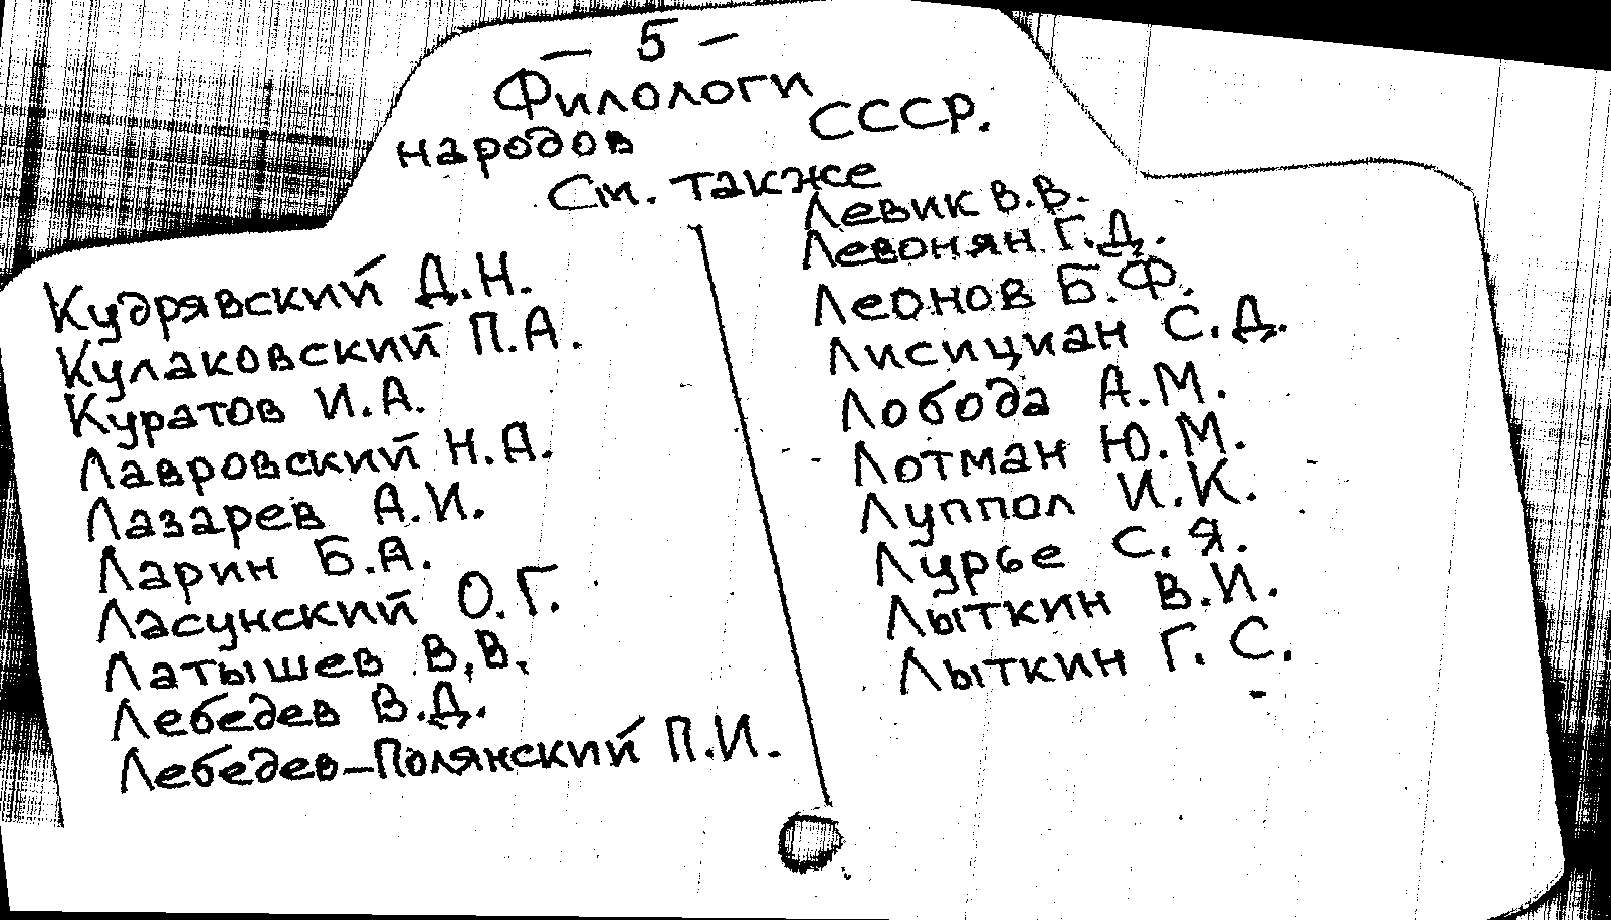 — 5 —
Филологи
народов СССР.
См. также
Кудрявский Д.Н.
Кулаковский П.А.
Куратов И.А.
Лавровский Н.А.
Лазарев А.И.
Ларин Б.А.
Ласунский О.Г.
Латышев В.В.
Лебедев В.Д.
Лебедев-Полянский П.И.
Левик В.В.
Левонян Г.Д.
Леонов Б.Ф.
Лисициан С.Д.
Лобода А.М.
Лотман Ю.М.
Луппол И.К.
Лурье С.Я.
Лыткин В.И.
Лыткин Г.С.